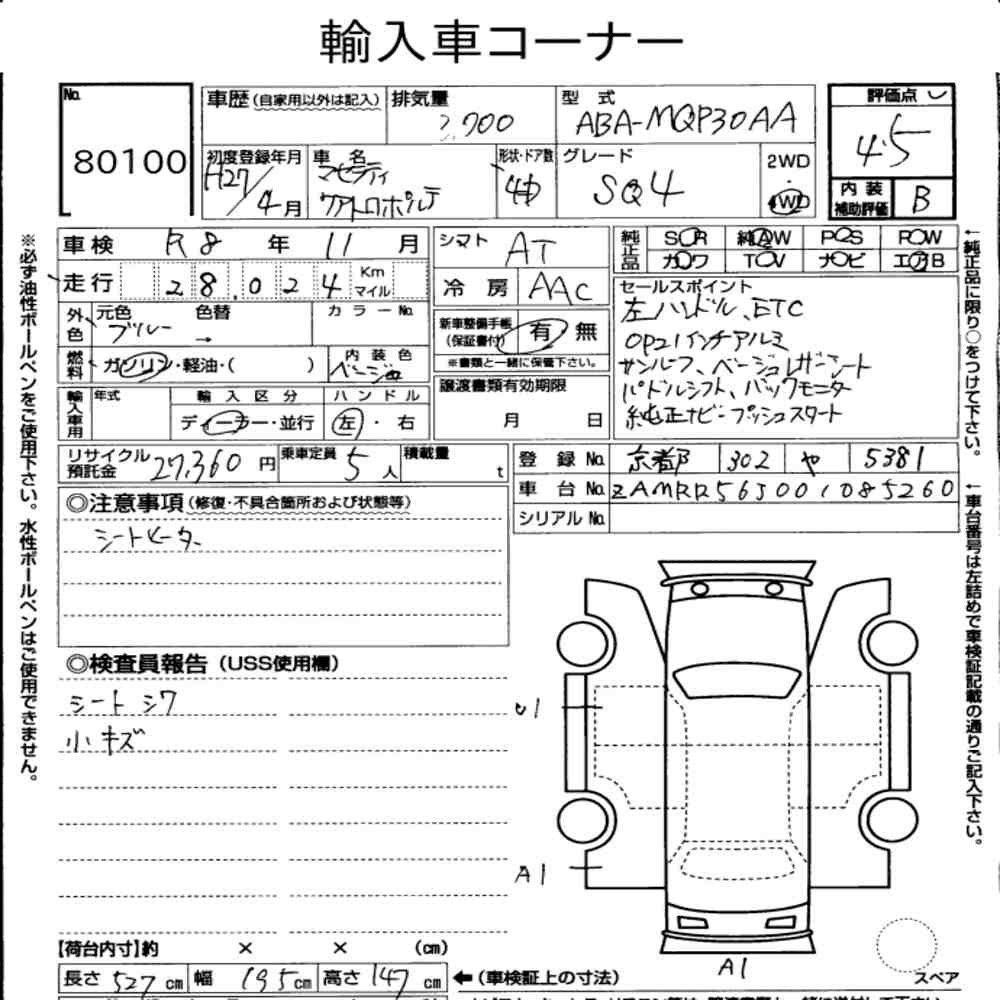 輸入車コーナー
No.
80100
車歴 (自家用以外は記入)
排気量
型 式
ABA-MQP30AA
評価点
4.5
初度登録年月
H27/4月
車 名
マセラティ
クアトロポルテ
形状・ドア数
グレード
SQ4
2WD
・
4WD
内 装
補助評価
B
車検 R8 年 11 月
走行 28,024 Km
マイル
外色
元色
ブルー
色替
→
カラー No.
燃料
ガソリン・軽油・( )
内 装 色
ベージュ
輸入車用
年式
輸 入 区 分
ディーラー・並行
ハ ン ド ル
左 ・ 右
シフト AT
冷 房 AAC
新車整備手帳
(保証書付)
有 無
※書類と一緒に保管下さい。
譲渡書類有効期限
月 日
純正品
SR AW PS PW
カワ TV ナビ エアB
セールスポイント
左ハンドル、ETC
OP21インチアルミ
サンルーフ、ベージュレザーシート
パドルシフト、バックモニター
純正ナビ プッシュスタート
リサイクル
預託金
27,360 円
乗車定員 5 人
積載量 t
登 録 No. 京都 302 や 5381
車 台 No. ZAMRR565001085260
シリアル No.
◎注意事項 (修復・不具合箇所および状態等)
シートヒーター
◎検査員報告 (USS使用欄)
シート シワ
小 キズ
U1
A1
A1
スペア
【荷台内寸】約 × × (cm)
長さ 527 cm 幅 195 cm 高さ 147 cm
←(車検証上の寸法)
※必ず油性ボールペンをご使用下さい。水性ボールペンはご使用できません。
←純正品に限り○をつけて下さい。
←車台番号は左詰めで車検証記載の通りご記入下さい。